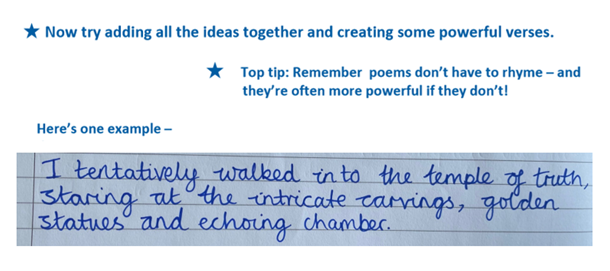 ★ Now try adding all the ideas together and creating some powerful verses.
★ Top tip: Remember poems don't have to rhyme – and
they're often more powerful if they don't!
Here's one example –
I tentatively walked into the temple of truth,
staring at the intricate carvings, golden
statues and echoing chamber.